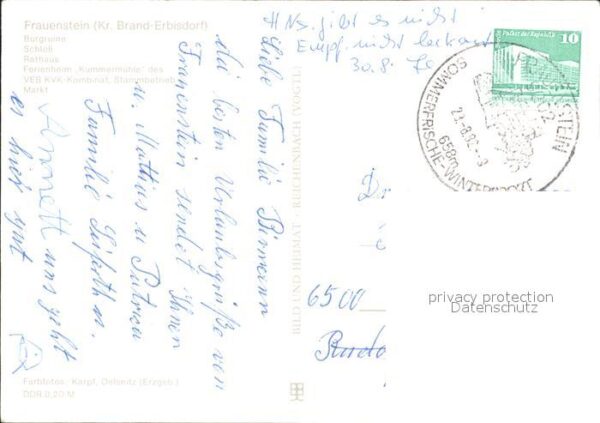 Frauenstein (Kr. Brand-Erbisdorf)
Burgruine
Schloß
Rathaus
Ferienheim „Kummermühle" des
VEB KVK-Kombinat, Stammbetrieb
Markt
H Ns. gibt es nicht
Empf. nicht bekannt
30.8.
10
Palast der Republik
FRAUENSTEIN
SOMMERFRISCHE-WINTERSPORT
658m
Liebe Familie
die besten Urlaubsgrüße von
Frauenstein sendet Ihnen
Familie Seiferth m.
u. Mathias u.
Annett uns geht
es hier gut
BILD UND HEIMAT · REICHENBACH (VOGTL)
6500
Rudo
privacy protection
Datenschutz
Farbfotos: Karpf, Oelsnitz (Erzgeb.)
DDR 0,20 M